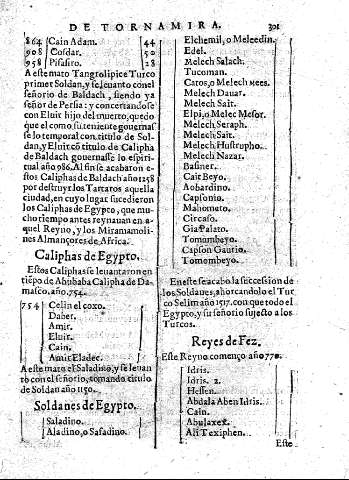 DE TORNAMIRA. 301
864 Cain Adam. 44
908 Cosdar. 50
958 Pisasiro. 28
A este mato Tangrolipice Turco
primer Soldan, y se leuanto con el
señorio de Baldach, siendo ya
señor de Persia: y concertandose
con Eluir hijo del muerto, quedo
que el como su teniente gouernas
se lo temporal con titulo de Sol-
dan, y Eluir cō titulo de Calipha
de Baldach gouernasse lo espiri-
tual año 986. Al fin se acabaron es-
tos Caliphas de Baldach año 1258
por destruyr los Tartaros aquella
ciudad, en cuyo lugar sucedieron
los Caliphas de Egypto, que mu-
cho tiempo antes reynauan en a-
quel Reyno, y los Miramamoli-
nes Almançores de Africa.
Caliphas de Egypto.
Estos Caliphas se leuantaron en
tiēpo de Ahubaba Calipha de Da-
masco, año. 754.
754 Celin el coxo.
Daber.
Amir.
Eluir.
Cain.
Amir Eladec.
A este mato el Saladino, y se leuan
to con el señorio, tomando titulo
de Soldan año 1150.
Soldanes de Egypto.
Saladino.
Aladino, o Safadino.
Elchemil, o Meledin.
Edel.
Melech Salach.
Tucoman.
Catos, o Melech Mees.
Melech Dauar.
Melech Sait.
Elpi, o Melec Mesor.
Melech Seraph.
Melech Sait.
Melech Hustrupho.
Melech Nazar.
Basiner.
Cait Beyo.
Aobardino.
Capsonio.
Mahometo.
Circaso.
Gia Palato.
Tomombeyo.
Capson Gaurio.
Tomombeyo.
En este se acabo la succession de
los Soldanes, ahorcandolo el Tur
co Selim año 1517. con que todo el
Egypto, y su señorio sujecto a los
Turcos.
Reyes de Fez.
Este Reyno començo año 770.
Idris.
Idris. 2.
Hessen.
Abdala Aben Idris.
Cain.
Abulaxer.
Ali Texiphen.
Este